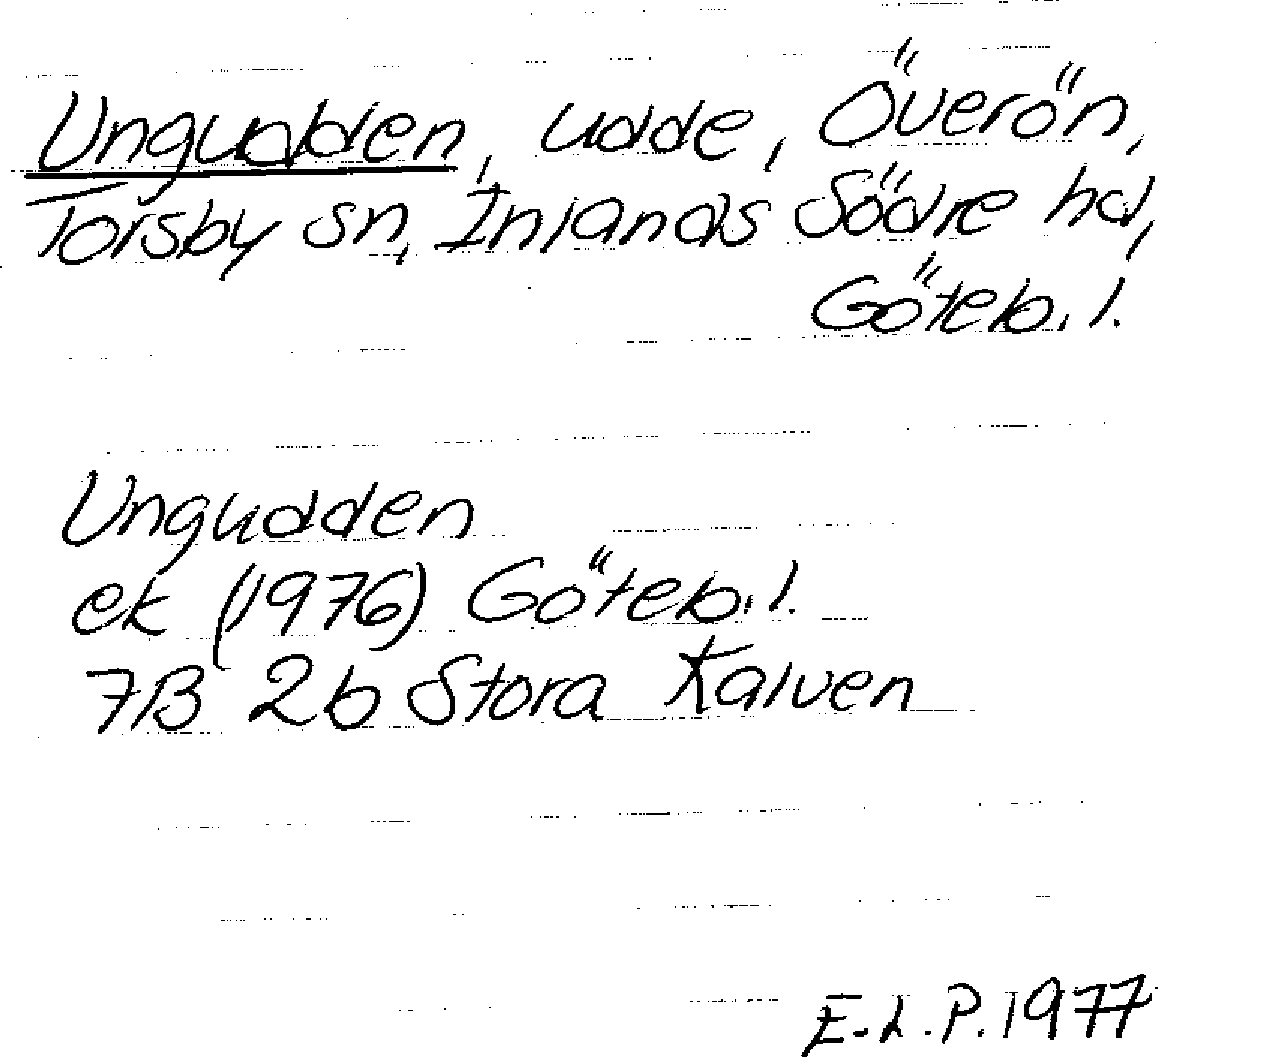 Ungudden, udde, Överön,
Torsby sn, Inlands Södre hd,
Göteb. l.
Ungudden
ek (1976) Göteb. l.
7B 2b Stora Kalven
E.L.P. 1977